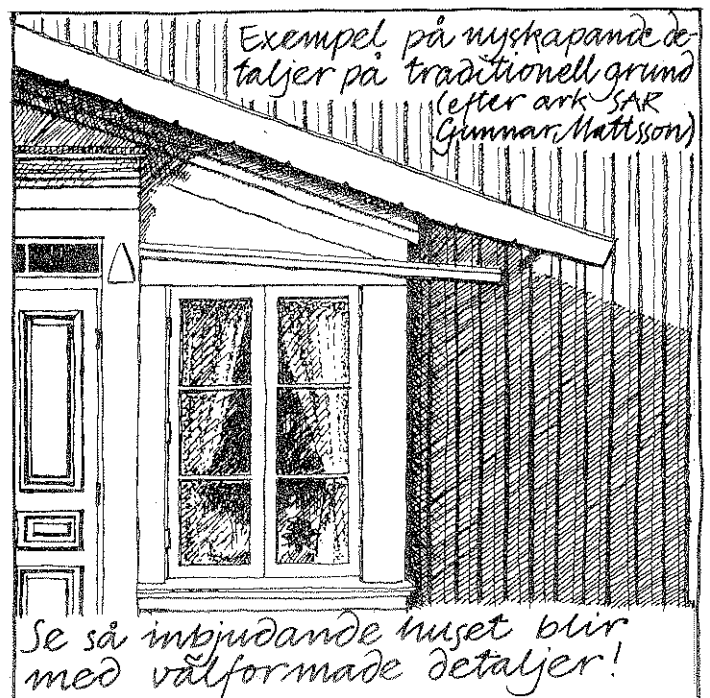 Exempel på nyskapande de-
taljer på traditionell grund
(efter ark SAR
Gunnar Mattsson)
Se så inbjudande huset blir
med välformade detaljer!